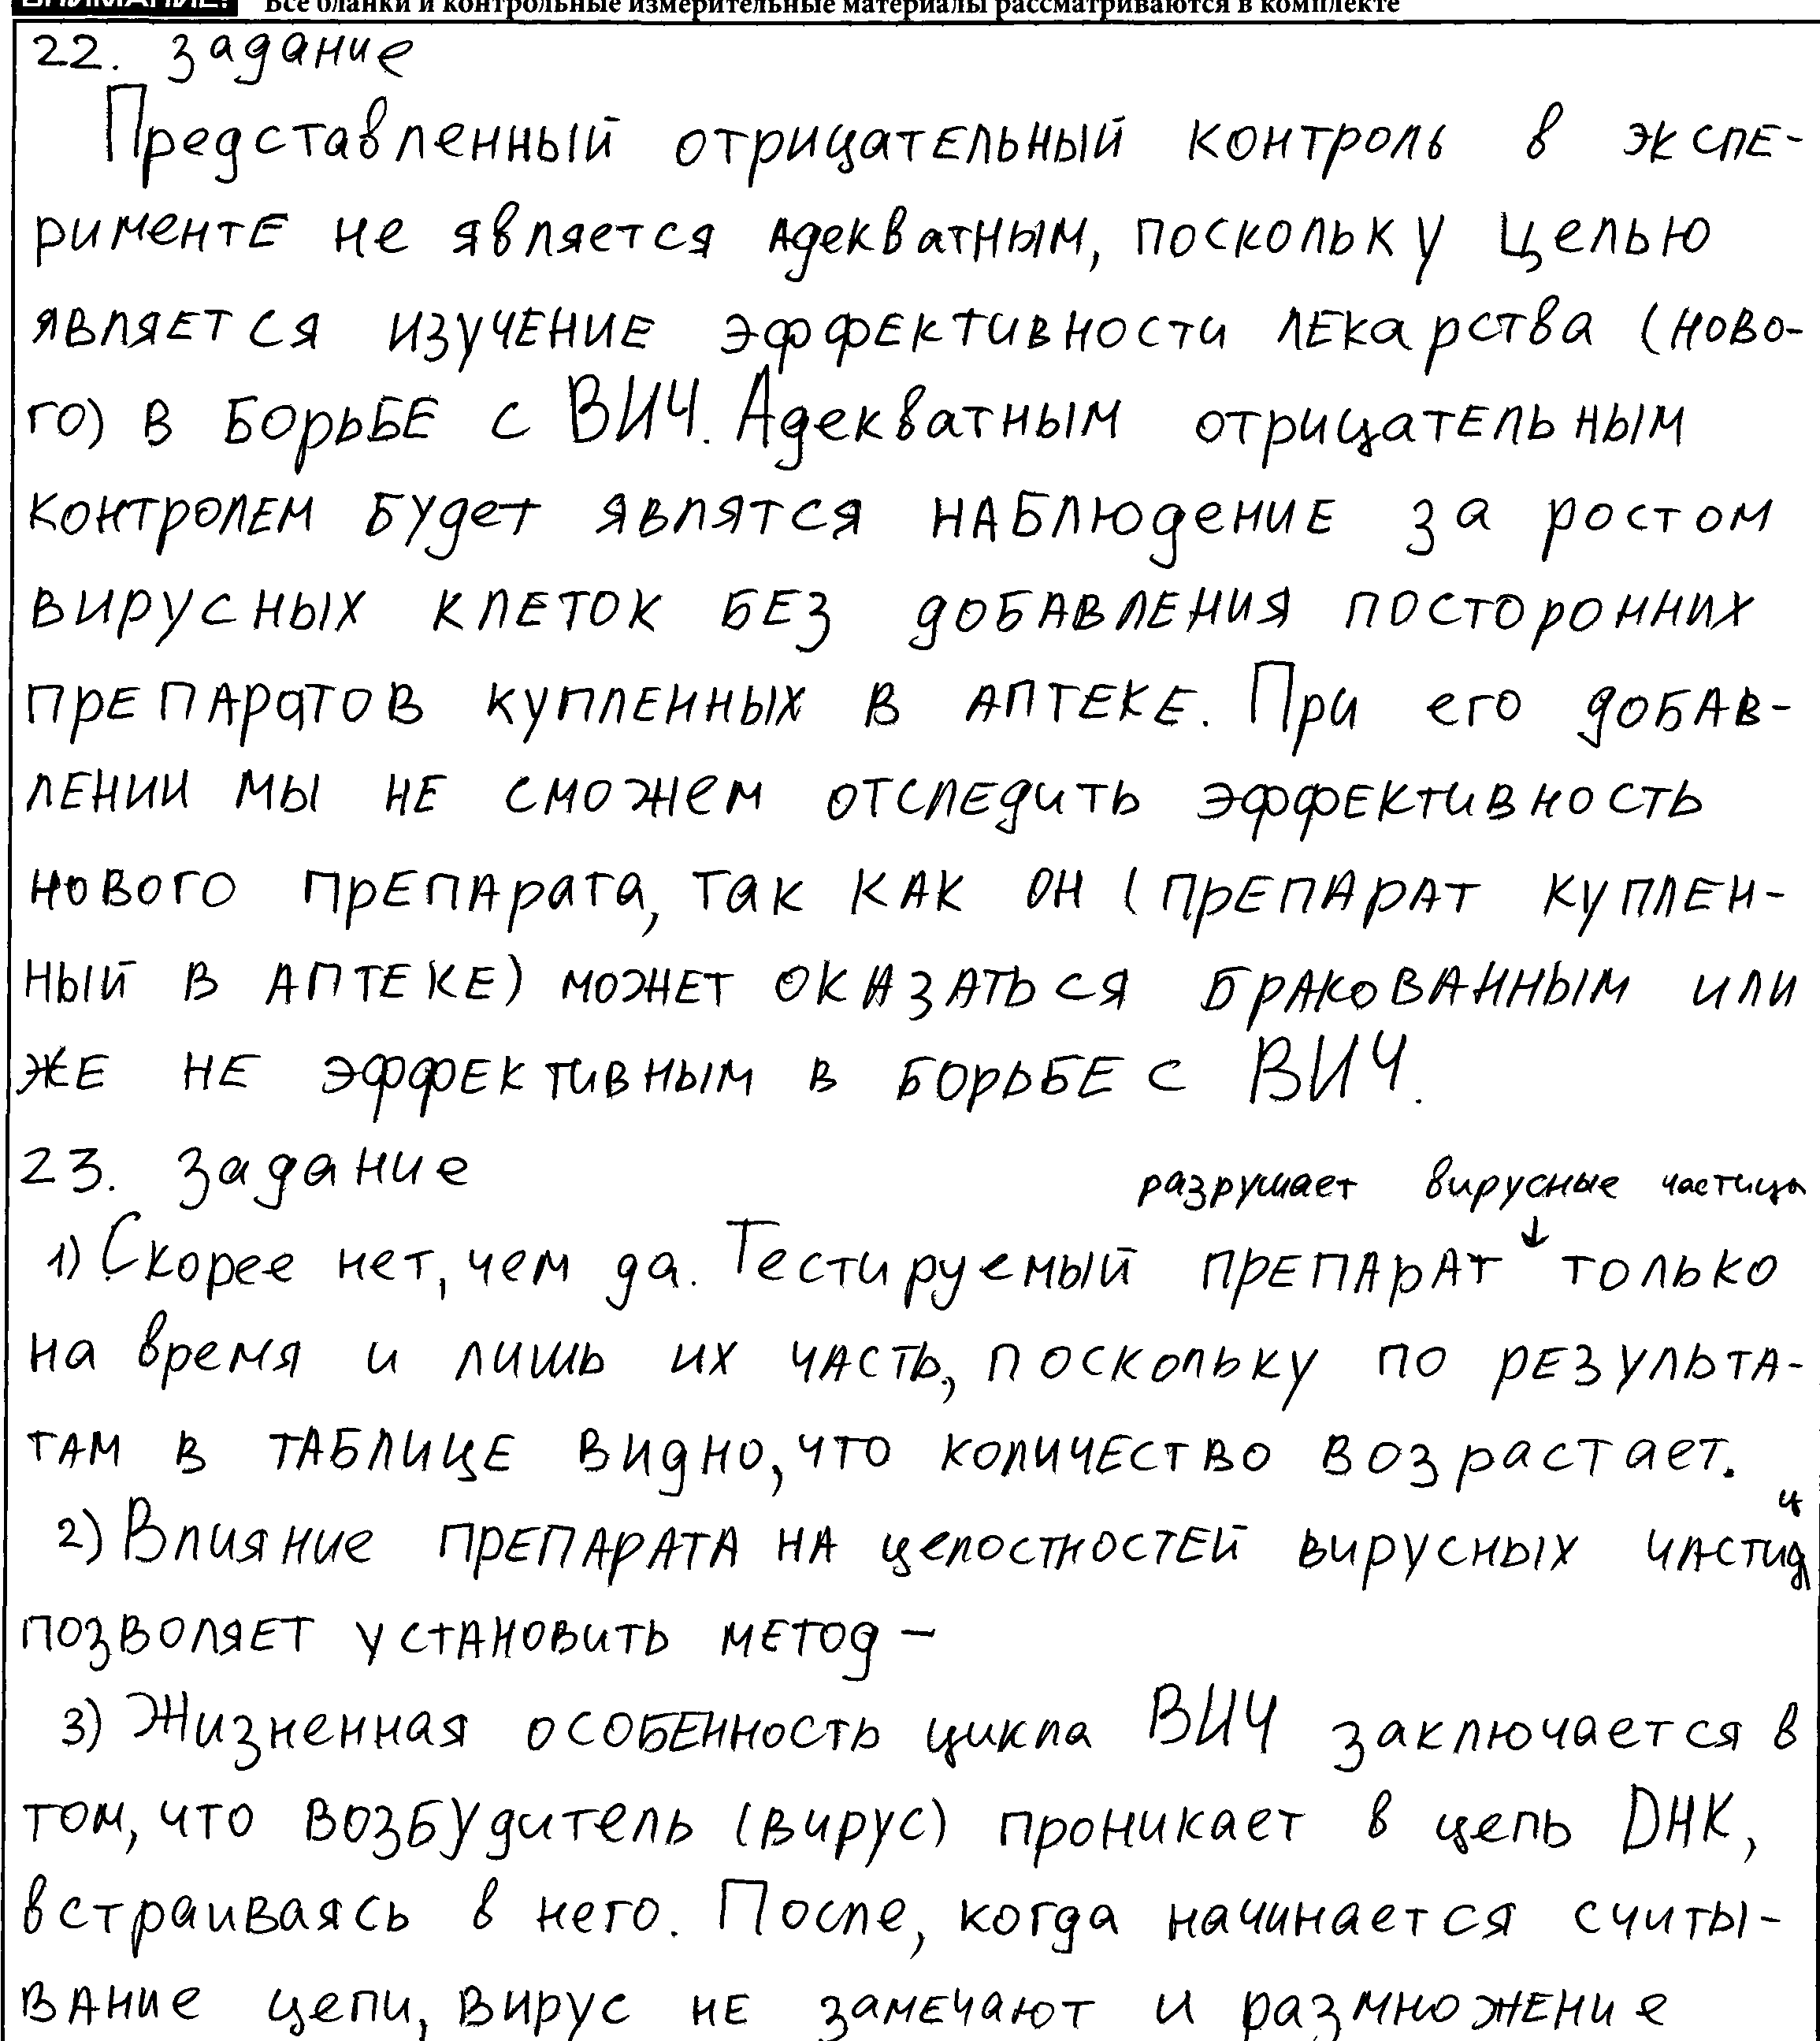 ВНИМАНИЕ! Все бланки и контрольные измерительные материалы рассматриваются в комплекте
22. задание
Представленный отрицательный контроль в экспе-
рименте не является адекватным, поскольку целью
является изучение эффективности лекарства (ново-
го) в борьбе с ВИЧ. Адекватным отрицательным
контролем будет являтся наблюдение за ростом
вирусных клеток без добавления посторонних
препаратов купленных в аптеке. При его добав-
лении мы не сможем отследить эффективность
нового препарата, так как он (препарат куплен-
ный в аптеке) может оказаться бракованным или
же не эффективным в борьбе с ВИЧ.
23. задание
разрушает вирусные частицы
1) Скорее нет, чем да. Тестируемый препарат ↓ только
на время и лишь их часть, поскольку по результа-
там в таблице видно, что количество возрастает.
2) Влияние препарата на целостностей вирусных частиц
позволяет установить метод –
3) Жизненная особенность цикла ВИЧ заключается в
том, что возбудитель (вирус) проникает в цепь ДНК,
встраиваясь в него. После, когда начинается считы-
вание цепи, вирус не замечают и размножение